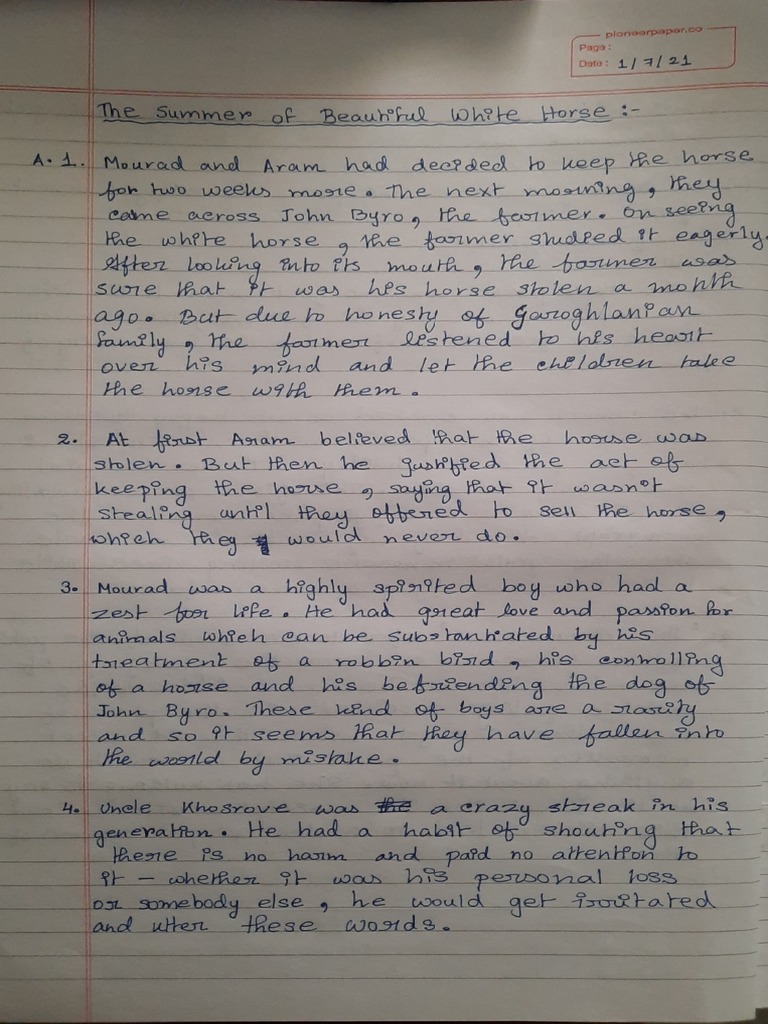 pioneerpaper.co
Page :
Date : 1/7/21
The Summer of Beautiful White Horse :-
A. 1. Mourad and Aram had decided to keep the horse
for two weeks more. The next morning, they
came across John Byro, the farmer. On seeing
the white horse, the farmer studied it eagerly.
After looking into its mouth, the farmer was
sure that it was his horse stolen a month
ago. But due to honesty of Garoghlanian
family, the farmer listened to his heart
over his mind and let the children take
the horse with them.
2. At first Aram believed that the horse was
stolen. But then he justified the act of
keeping the horse, saying that it wasn't
stealing until they offered to sell the horse,
which they would never do.
3. Mourad was a highly spirited boy who had a
zest for life. He had great love and passion for
animals which can be substantiated by his
treatment of a robbin bird, his controlling
of a horse and his befriending the dog of
John Byro. These kind of boys are a rarity
and so it seems that they have fallen into
the world by mistake.
4. Uncle Khosrove was the a crazy streak in his
generation. He had a habit of shouting that
there is no harm and paid no attention to
it - whether it was his personal loss
or somebody else, he would get irritated
and utter these words.